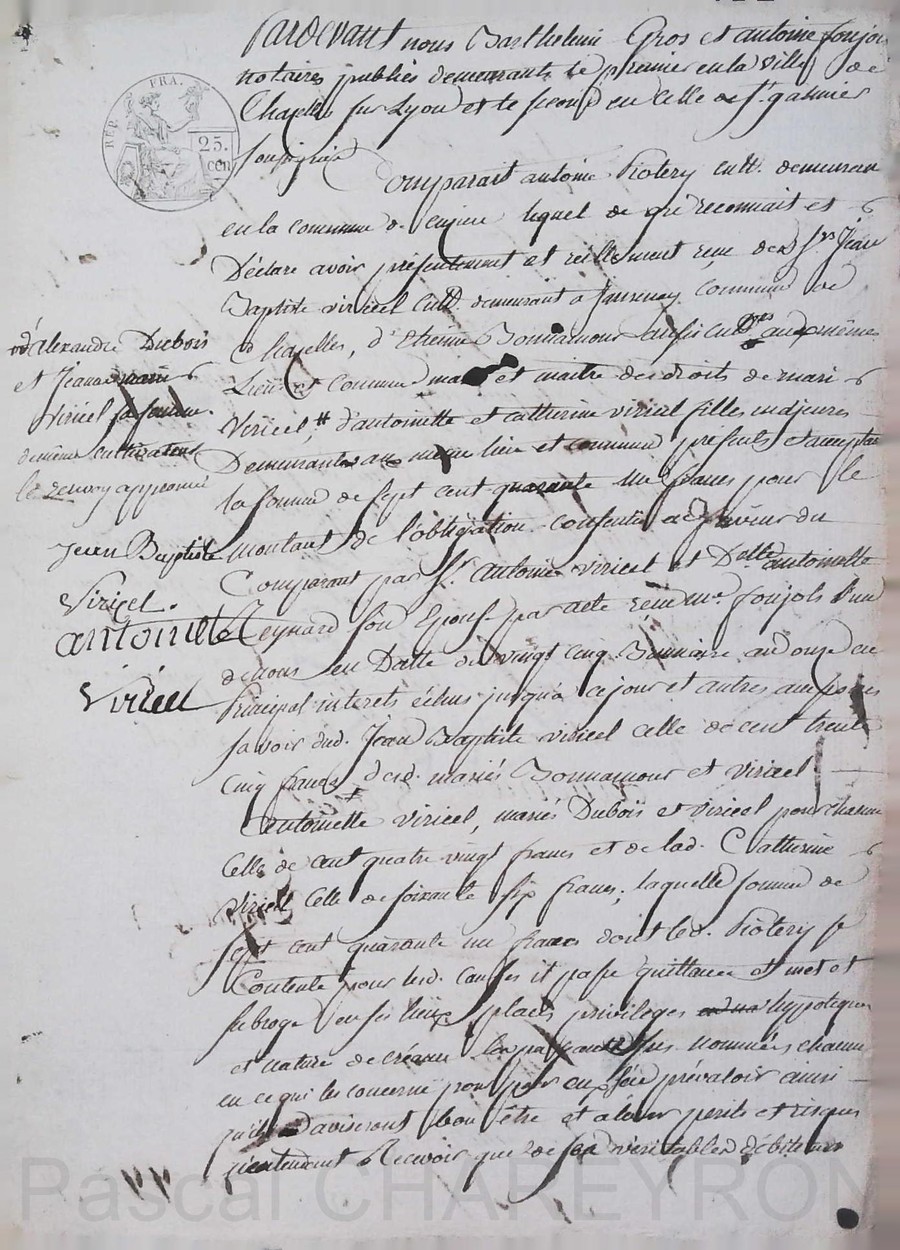 Pardevant nous Barthelemi Gros et antoine foujols
notaires publics demeurants le premier en la ville de
Chazelles sur Lyon et le second en celle de St. galmier
soussignés
REP. FRA.
25.
cen
Comparait antoine Piotery cult. demeurant
en la commune de lequel de gré reconnait et
Déclare avoir présentement et réellement reçu des Srs Jean
Baptiste viricel cult. demeurant a commune de
Chazelles, d'Etienne Bonnamour aussi cult. aud. même
Lieu et Commune mari et maitre des droits de mari
Viricel, # d'antoinette et catherine viricel filles majeures
Demeurantes au meme lieu et commune présents et acceptant
la somme de sept cent quarante un francs pour le
montant de l'obligation consentie a faveur du
Comparant par Sr. antoine viricel et Dlle antoinette
Reynard son Epouse par acte reçu me. foujols l'un
de nous en Datte du vingt cinq Brumaire an onze en
Principal interets échus jusqu'a ce jour et autres
savoir dud. Jean Baptiste viricel celle de cent trente
cinq francs desd. mariés Bonnamour et viricel
antoinette viricel, mariés Dubois et viricel pour chacun
Celle de cent quatre vingt francs et de lad. Catherine
viricel Celle de soixante six francs; laquelle somme de
sept cent quarante un francs dont led. Piotery se
Contente pour lesd. causes il passe quittance et met et
subroge en ses lieux, places privileges hypoteques
et nature de créance les nommés chacun
en ce qui les concerne pour par eux s'en prévaloir ainsi
qu'ils aviseront bon être et a leur perils et risques
Recevoir que de ses véritables débiteurs
d'alexandre Dubois
et Jeanne marie
Viricel sa femme
demême cultivateurs
le renvoy approuvé
Jean Baptiste
Viricel.
antoinette
Viricel
Pascal CHAREYRON